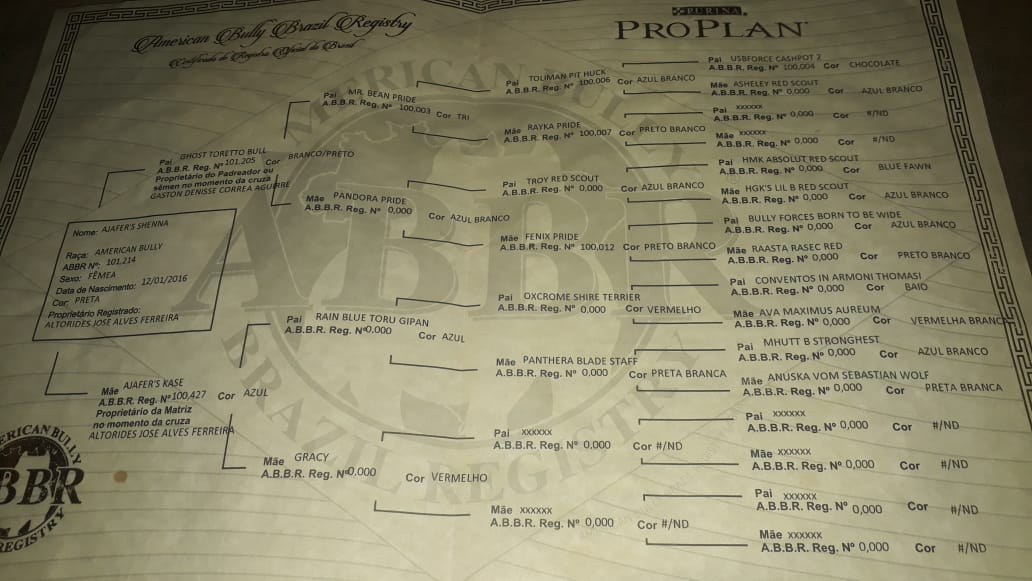 American Bully Brazil Registry
Certificado de Registro Oficial do Brasil
PURINA
PROPLAN
Nome: AJAFER'S SHENNA
Raça: AMERICAN BULLY
ABBR Nº: 101,214
Sexo: FÊMEA
Data de Nascimento: 12/01/2016
Cor: PRETA
Proprietário Registrado:
ALTORIDES JOSE ALVES FERREIRA
Pai GHOST TORETTO BULL
A.B.B.R. Reg. Nº 101,205 Cor BRANCO/PRETO
Proprietário do Padreador ou
sêmen no momento da cruza
GASTON DENISSE CORREA AGUIRRE
Mãe AJAFER'S KASE
A.B.B.R. Reg. Nº 100,427 Cor AZUL
Proprietário da Matriz
no momento da cruza
ALTORIDES JOSE ALVES FERREIRA
Pai MR. BEAN PRIDE
A.B.B.R. Reg. Nº 100,003 Cor TRI
Mãe PANDORA PRIDE
A.B.B.R. Reg. Nº 0,000 Cor AZUL BRANCO
Pai RAIN BLUE TORU GIPAN
A.B.B.R. Reg. Nº 0,000 Cor AZUL
Mãe GRACY
A.B.B.R. Reg. Nº 0,000 Cor VERMELHO
Pai TOLIMAN PIT HUCK
A.B.B.R. Reg. Nº 100,006 Cor AZUL BRANCO
Mãe RAYKA PRIDE
A.B.B.R. Reg. Nº 100,007 Cor PRETO BRANCO
Pai TROY RED SCOUT
A.B.B.R. Reg. Nº 0,000 Cor AZUL BRANCO
Mãe FENIX PRIDE
A.B.B.R. Reg. Nº 100,012 Cor PRETO BRANCO
Pai OXCROME SHIRE TERRIER
A.B.B.R. Reg. Nº 0,000 Cor VERMELHO
Mãe PANTHERA BLADE STAFF
A.B.B.R. Reg. Nº 0,000 Cor PRETA BRANCA
Pai xxxxxx
A.B.B.R. Reg. Nº 0,000 Cor #/ND
Mãe xxxxxx
A.B.B.R. Reg. Nº 0,000 Cor #/ND
Pai USBFORCE CASHPOT 2
A.B.B.R. Reg. Nº 100,004 Cor CHOCOLATE
Mãe ASHELEY RED SCOUT
A.B.B.R. Reg. Nº 0,000 Cor AZUL BRANCO
Pai xxxxxx
A.B.B.R. Reg. Nº 0,000 Cor #/ND
Mãe xxxxxx
A.B.B.R. Reg. Nº 0,000 Cor #/ND
Pai HMK ABSOLUT RED SCOUT
A.B.B.R. Reg. Nº 0,000 Cor BLUE FAWN
Mãe HGK'S LIL B RED SCOUT
A.B.B.R. Reg. Nº 0,000 Cor AZUL BRANCO
Pai BULLY FORCES BORN TO BE WIDE
A.B.B.R. Reg. Nº 0,000 Cor AZUL BRANCO
Mãe RAASTA RASEC RED
A.B.B.R. Reg. Nº 0,000 Cor PRETO BRANCO
Pai CONVENTOS IN ARMONI THOMASI
A.B.B.R. Reg. Nº 0,000 Cor BAIO
Mãe AVA MAXIMUS AUREUM
A.B.B.R. Reg. Nº 0,000 Cor VERMELHA BRANCA
Pai MHUTT B STRONGHEST
A.B.B.R. Reg. Nº 0,000 Cor AZUL BRANCO
Mãe ANUSKA VOM SEBASTIAN WOLF
A.B.B.R. Reg. Nº 0,000 Cor PRETA BRANCA
Pai xxxxxx
A.B.B.R. Reg. Nº 0,000 Cor #/ND
Mãe xxxxxx
A.B.B.R. Reg. Nº 0,000 Cor #/ND
Pai xxxxxx
A.B.B.R. Reg. Nº 0,000 Cor #/ND
Mãe xxxxxx
A.B.B.R. Reg. Nº 0,000 Cor #/ND
AMERICAN BULLY
ABBR
BRAZIL REGISTRY
ERICAN BULLY
BBR
REGISTRY